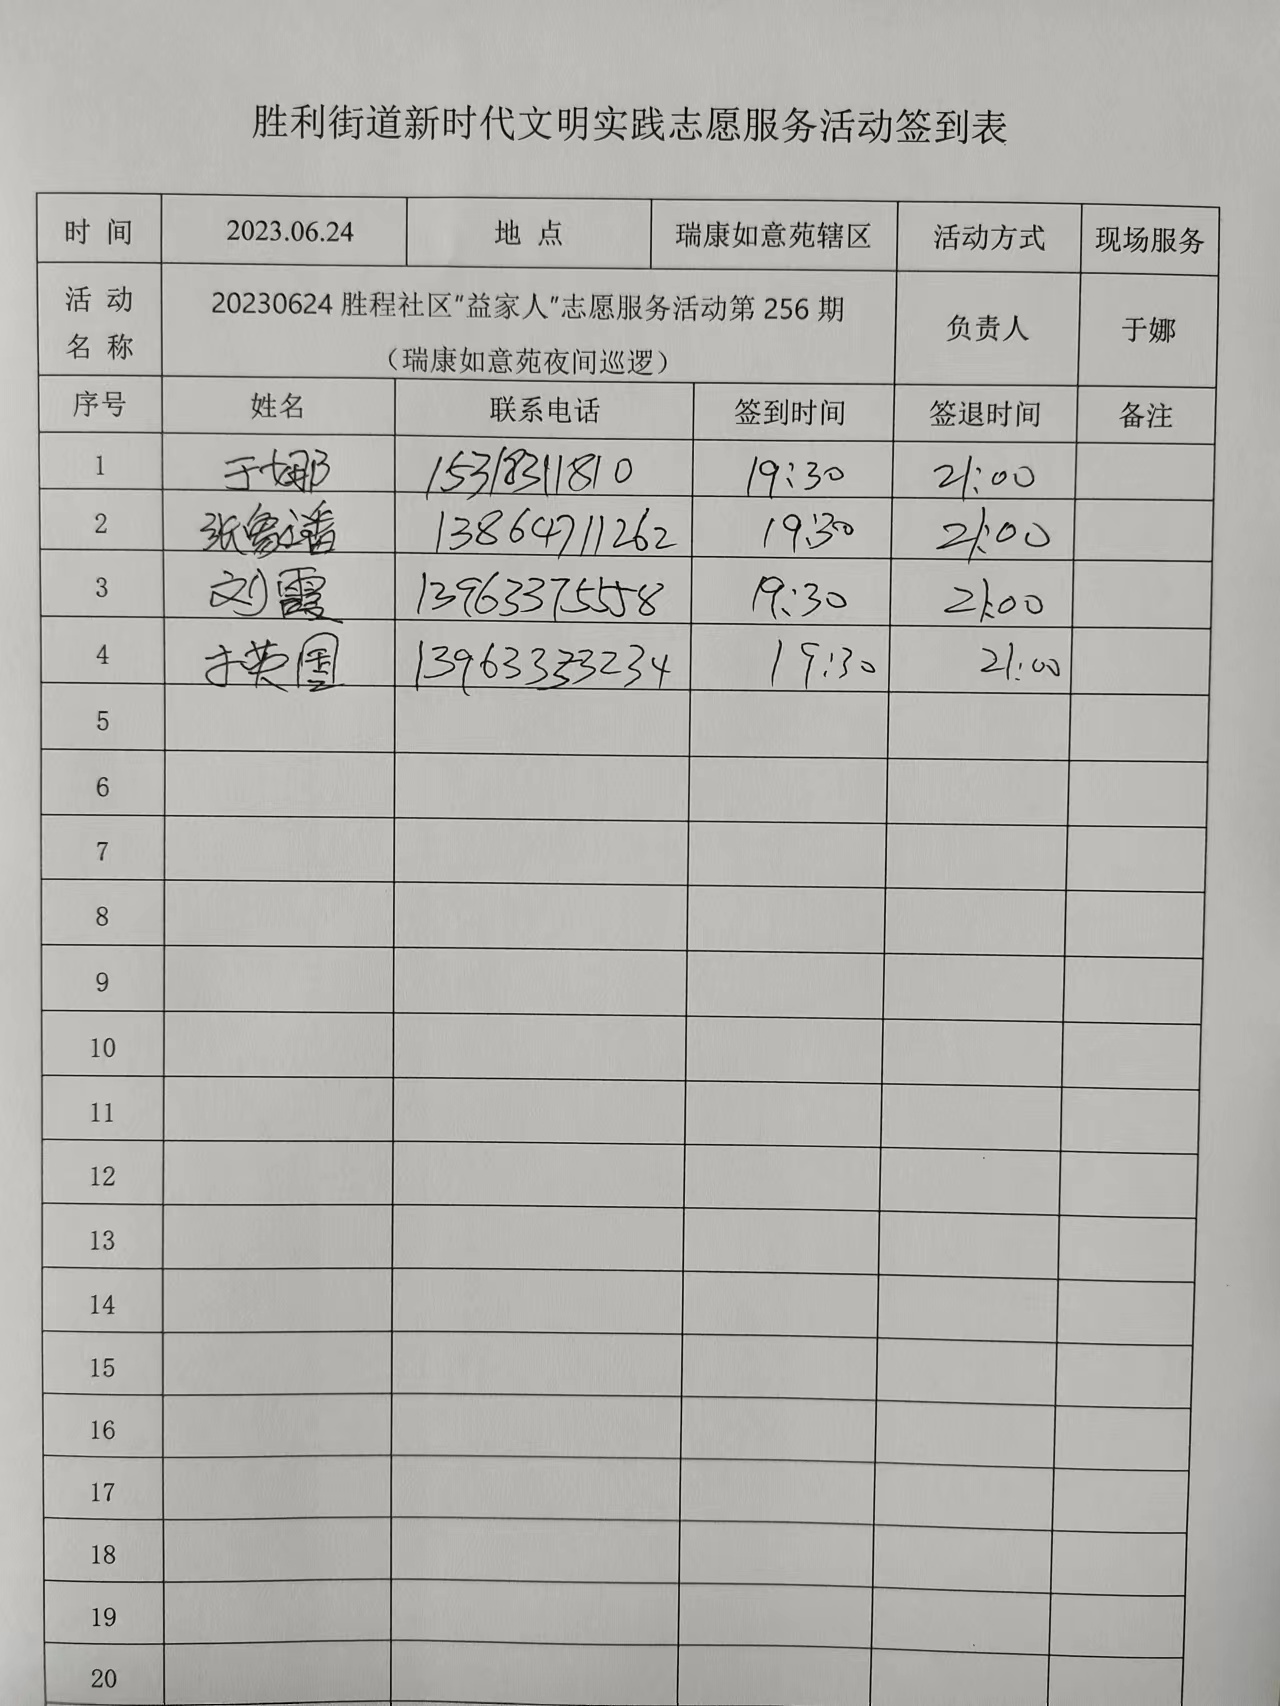 胜利街道新时代文明实践志愿服务活动签到表
时 间 2023.06.24 地 点 瑞康如意苑辖区 活动方式 现场服务
活 动 名 称 20230624 胜程社区"益家人"志愿服务活动第 256 期 负责人 于娜
（瑞康如意苑夜间巡逻）
序号 姓名 联系电话 签到时间 签退时间 备注
1 于娜 15318311810 19:30 21:00
2 13864711262 19:30 21:00
3 刘霞 13963375558 19:30 21:00
4 于英国 13963333234 19:30 21:00
5
6
7
8
9
10
11
12
13
14
15
16
17
18
19
20